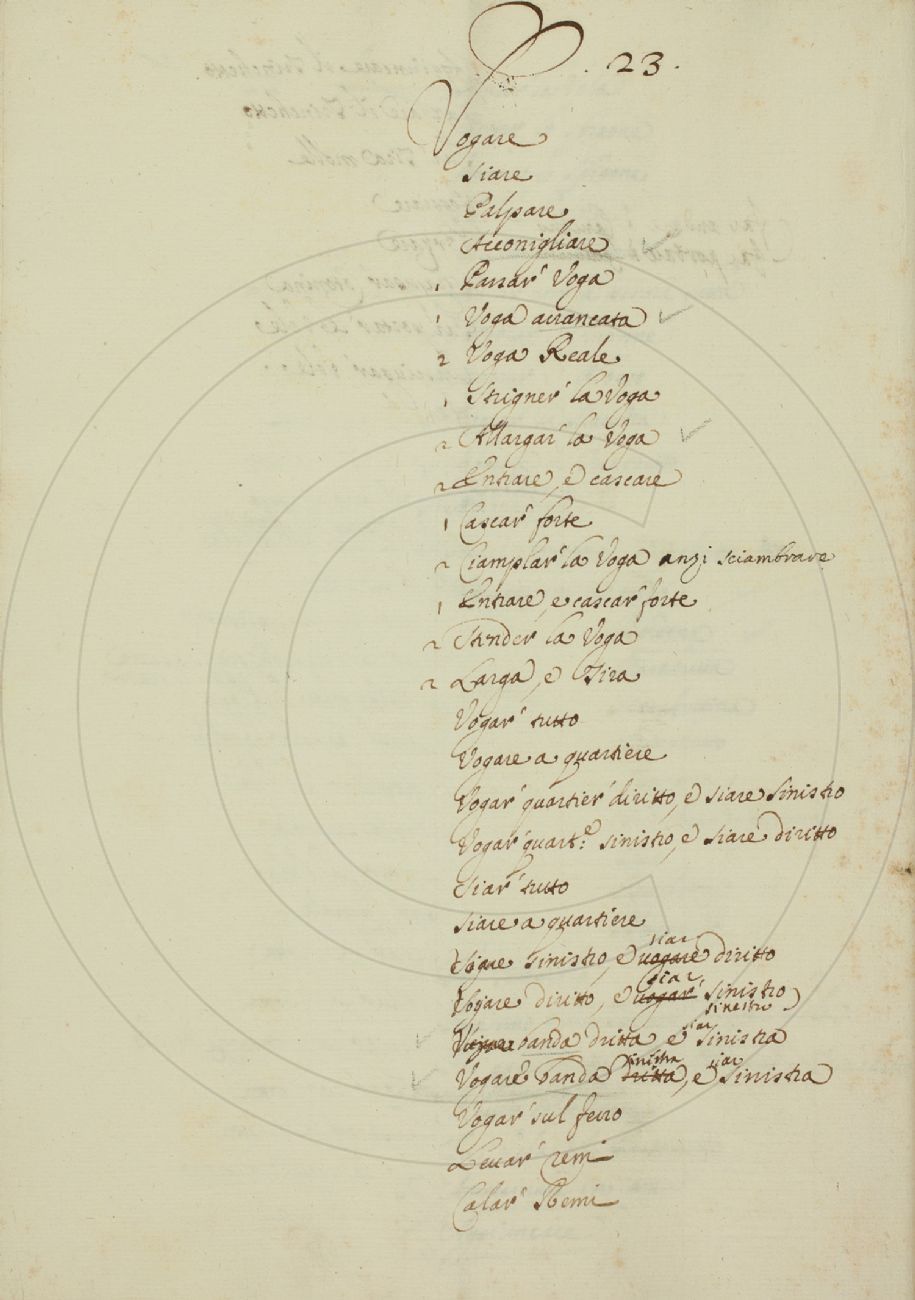 . 23 .
Vogare
Siare
Palpare
Acconigliare
1 Passar' Voga
1 Voga arrancata
2 Voga Reale
1 Strigner' la Voga
2 Allargar' la Voga
2 Entrare, e cascare
1 Cascar' forte
2 Ciamplar' la Voga anzi sciambrare
1 Entrare, e cascar' forte
2 Stender' la Voga
2 Larga, e Tira
Vogar' tutto
Vogare a quartiere
Vogar' quartier' diritto, e siare sinistro
Vogar' quart:e sinistro, e siare diritto
Siar' tutto
Siare a quartiere
siar
sinistro, e vogare diritto
siar
Vogare diritto, e vogar' sinistro
sinistro
siar
banda dritta e sinistra
sinistra siar
Vogare banda dritta, e sinistra
Vogar' sul ferro
Levar' remi
Calar' Remi